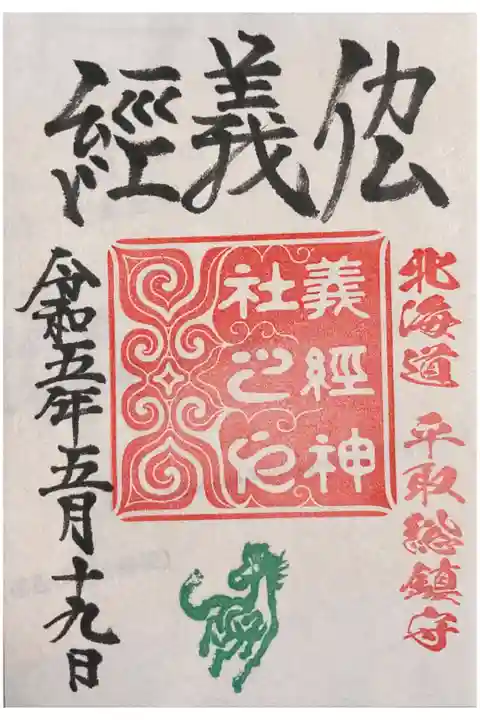 義經
北海道 平取総鎮守
義經神
社之印
令和五年五月十九日